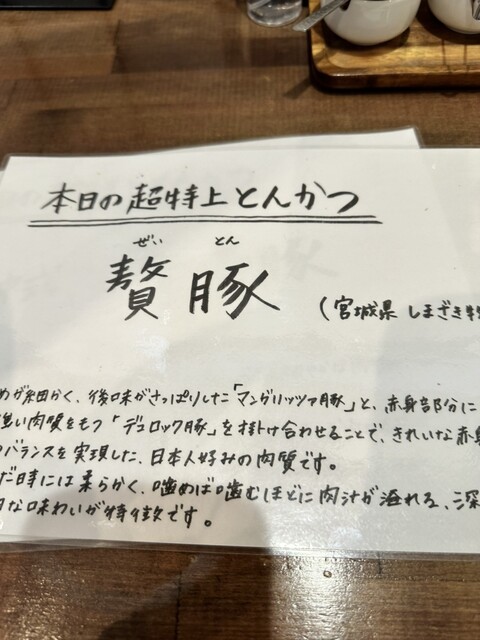 本日の超特上とんかつ
ぜい とん
贅豚
(宮城県 しまざき牧
めが細かく、後口味がさっぱりした「マンガリッツァ豚」と、赤身部分に
強い肉質をもつ「デュロック豚」を掛け合わせることで、きれいな赤身
のバランスを実現した、日本人好みの肉質です。
だ時には柔らかく、噛めば噛むほどに肉汁が溢れる、深
な味わいが特徴です。